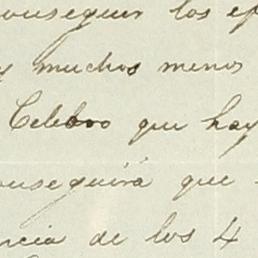 conseguir los ef
y muchos menos
Celebro que hay
onseguirá que
ncia de los 4